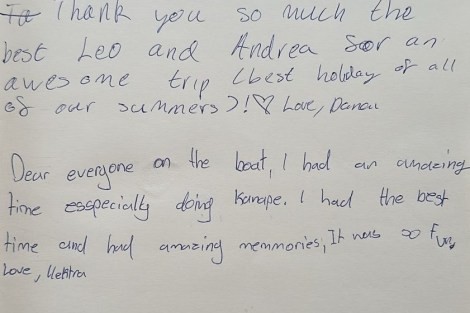 Thank you so much the
best Leo and Andrea for an
awesome trip (best holiday of all
of our summers)!♡ Love, Danai
Dear everyone on the boat, I had an amazing
time esspecially doing Kanape. I had the best
time and had amazing memmories, It was so fun,
Love,